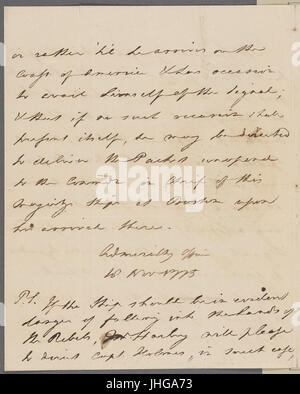 or rather 'till he arrives on the
Coast of America & has occasion
to avail himself of the signal;
& that if no such occasion shall
present itself, he may be directed
to deliver the Packet unopened
to the Commr in Chief of this
Majesty's Ships at Boston upon
his arrival there.
Admiralty Office
18 Nov 1775
P.S. If the Ship should be in evident
danger of falling into the hands of
the Rebels, Mr Hanley will please
to direct Capt Holmes, in such case,
alamy
Image ID: 2HJGA73
www.alamy.com